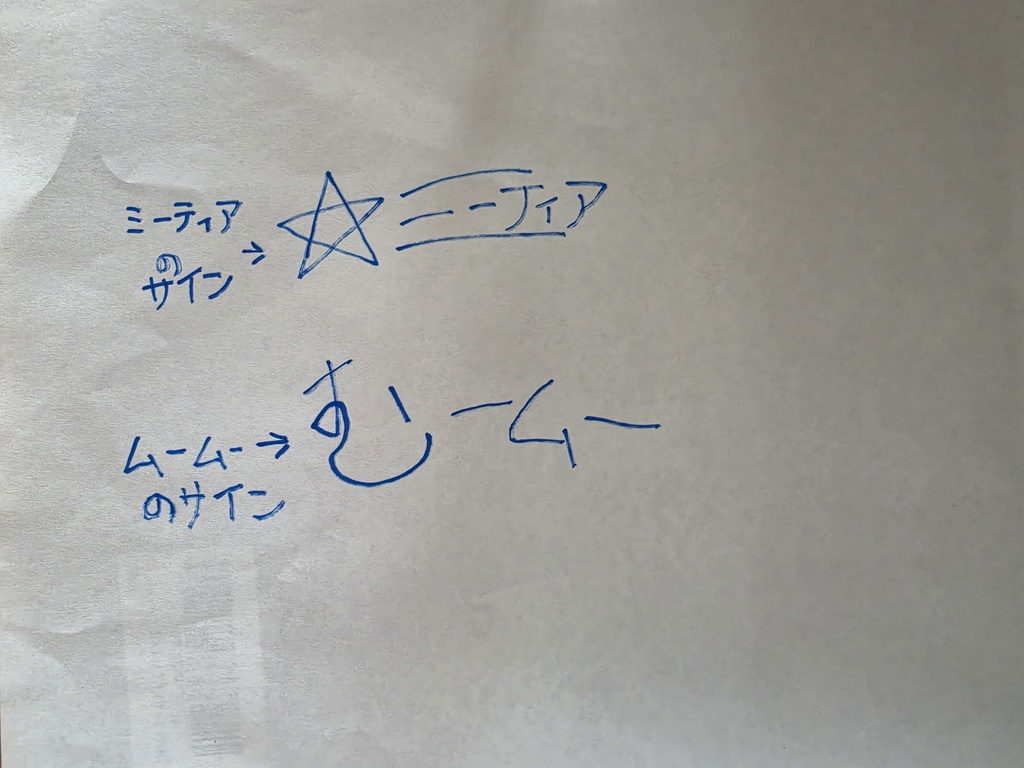 ミーティア
の
サイン
→ ☆ミーティア
ムームー→
のサイン
むームー